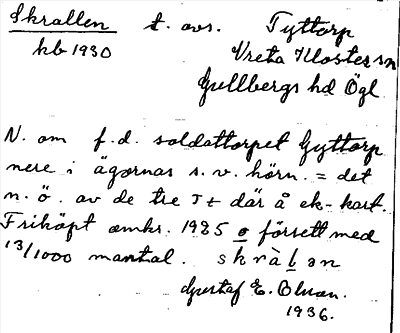 Skrallen t. avs. Tyttorp
kb 1930 Vreta Klosters sn
Gullbergs hd Ögl
N. om f.d. soldattorpet Gyttorp
nere i ägornas s.v. hörn. = det
n.ö. av de tre Jt där å ek-kart.
Friköpt omkr. 1925 o försett med
13/1000 mantal. skràlən
Gustaf E. Olsson.
1936.